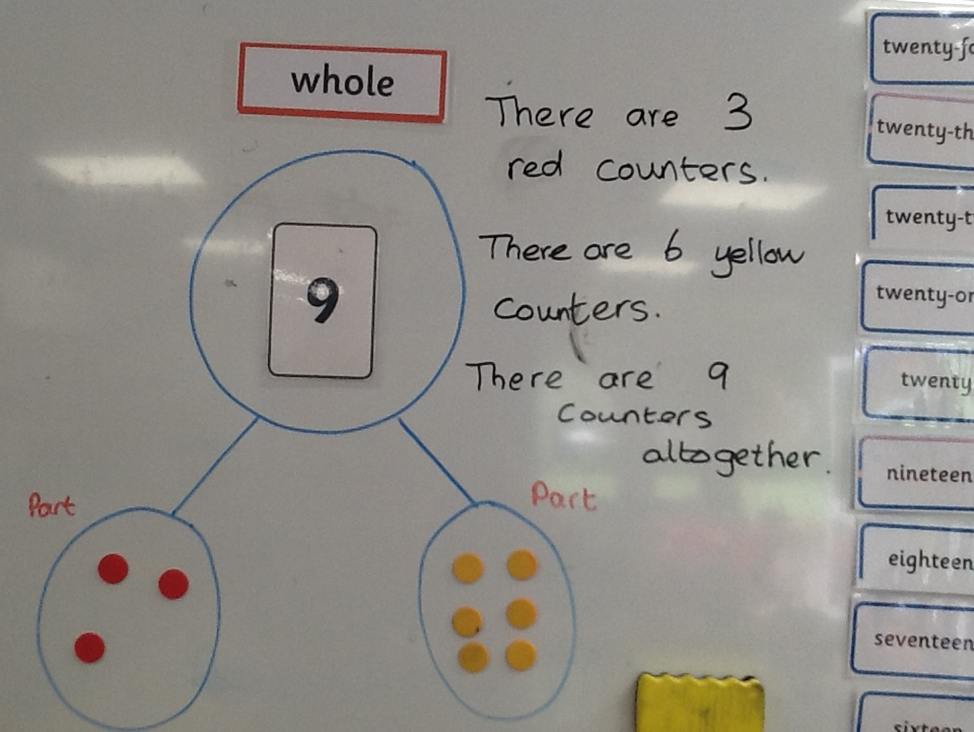 whole
There are 3
red counters.
9
There are 6 yellow
counters.
There are 9
counters
altogether.
Part
Part
twenty-fo
twenty-th
twenty-t
twenty-or
twenty
nineteen
eighteen
seventeen
sixteen